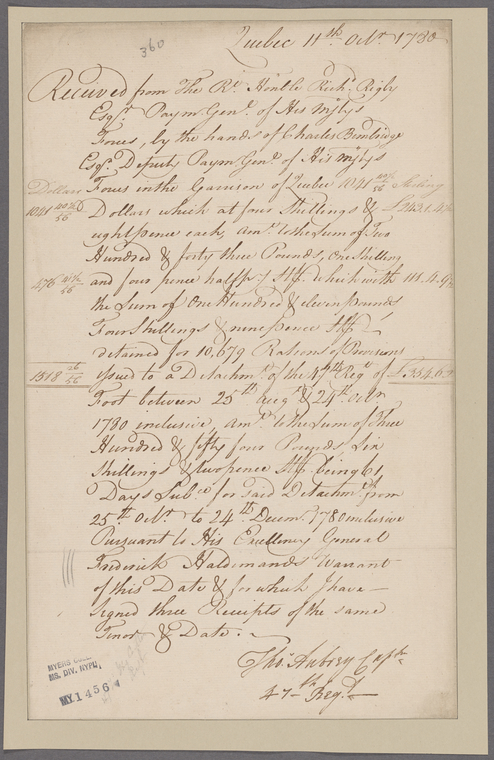 360
Quebec 11th Octr. 1780
Received from The Rt. Honble Richd. Rigby
Esqr. Paymr. Genl. of His Mjtys
Forces, by the hands of Charles
Esqr. Deputy Paymr. Genl. of His Mjtys
Dollars Forces in the Garrison of Quebec 1041 Sterling
1041 Dollars which at four Shillings & £243.1.4½
eight pence each, amts. to the Sum of Two
Hundred & forty three Pounds, One Shilling
476 and four pence halfpy. Stg. which with 111.4.9½
the Sum of One Hundred & eleven pounds
Four Shillings & nine pence Stg.
detained for 10,679 Rations of Provisions
1518 issued to a Detachmt. of the 47th Regt. of £354.6.2
Foot between 25th Augt. & 24th Octr.
1780 inclusive, amts. to the Sum of Three
Hundred & fifty four Pounds Six
Shillings & two pence Stg. being 61
Days Subce. for said Detachmt. from
25th Octr. to 24th Decemr. 1780 inclusive
Pursuant to His Excellency General
Frederick Haldimands Warrant
of this Date & for which I have
Signed three Receipts of the same
Tenor & Date.
Thos. Aubrey Captn.
47th Regt.
MYERS COLL.
MS. DIV. NYPL
MY 1456